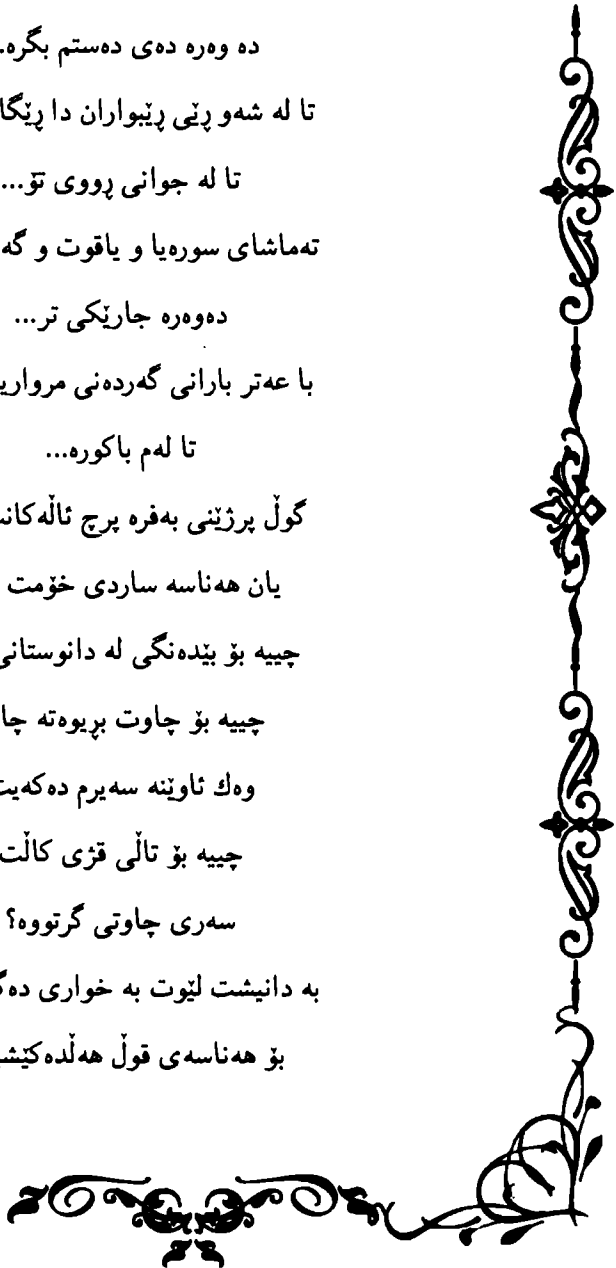 ده وەرە دەی دەستم بگرە.
تا لە شەو ڕێی ڕێبواران دا
تا لە جوانی ڕووی تۆ...
تەماشای سورەیا و یاقوت و
دەوەرە جارێکی تر...
با عەتر بارانی گەردەنی
تا لەم باکورە...
گوڵ پرژێنی بەفرە پرچ
یان هەناسە ساردی خۆمت
چییە بۆ بێدەنگی لە
چییە بۆ چاوت بڕیوەتە
وەك ئاوێنە سەیرم
چییە بۆ تاڵی قژی کاڵت
سەری چاوتی گرتووە؟
بە دانیشت لێوت بە خواری
بۆ هەناسەی قوڵ